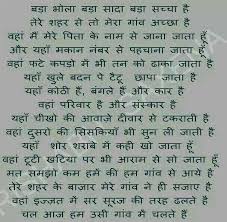 बड़ा भोला बड़ा सादा बड़ा सच्चा है
तेरे शहर से तो मेरा गांव अच्छा है
वहां मैं मेरे पिता के नाम से जाना जाता हूँ
और यहाँ मकान नंबर से पहचाना जाता हूँ
वहां फटे कपड़ो में भी तन को ढाका जाता है
यहाँ खुले बदन पे टैटू छापा जाता है
यहाँ कोठी है, बंगले है और कार है
वहां परिवार है और संस्कार है
यहाँ चीखो की आवाजे दीवार से टकराती है
वहां दुसरो की सिसकियाँ भी सुन ली जाती है
यहाँ शोर शराबे में कही खो जाता हूँ
वहां टूटी खटिया पर भी आराम से सो जाता हूँ
मत समझो कम हमें की हम गांव से आये है
तेरे शहर के बाजार मेरे गांव ने ही सजाए है
वहां इज्जत में सर सूरज की तरह ढलते है
चल आज हम उसी गांव में चलते है